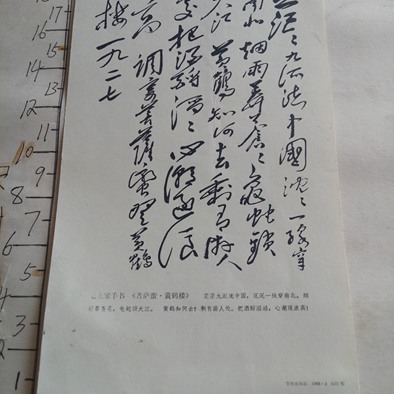 茫〻九派流中國沉〻一线穿
南北烟雨莽苍〻龟蛇锁
大江 黄鹤知何去剩有游人
处把酒酹滔〻心潮逐浪
高 调寄菩萨蛮登黄鹤
楼 一九二七
主席手书 《菩萨蛮·黄鹤楼》 茫茫九派流中国，沉沉一线穿南北。烟
雨莽苍苍，龟蛇锁大江。 黄鹤知何去？剩有游人处。把酒酹滔滔，心潮逐浪高！
17
16
15
14
13
12
11
10
9
8
7
6
5
4
3
2
1